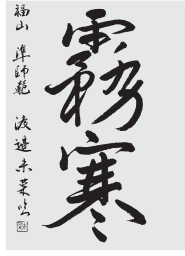 霧寒
福山 準師範 渡邉未菜